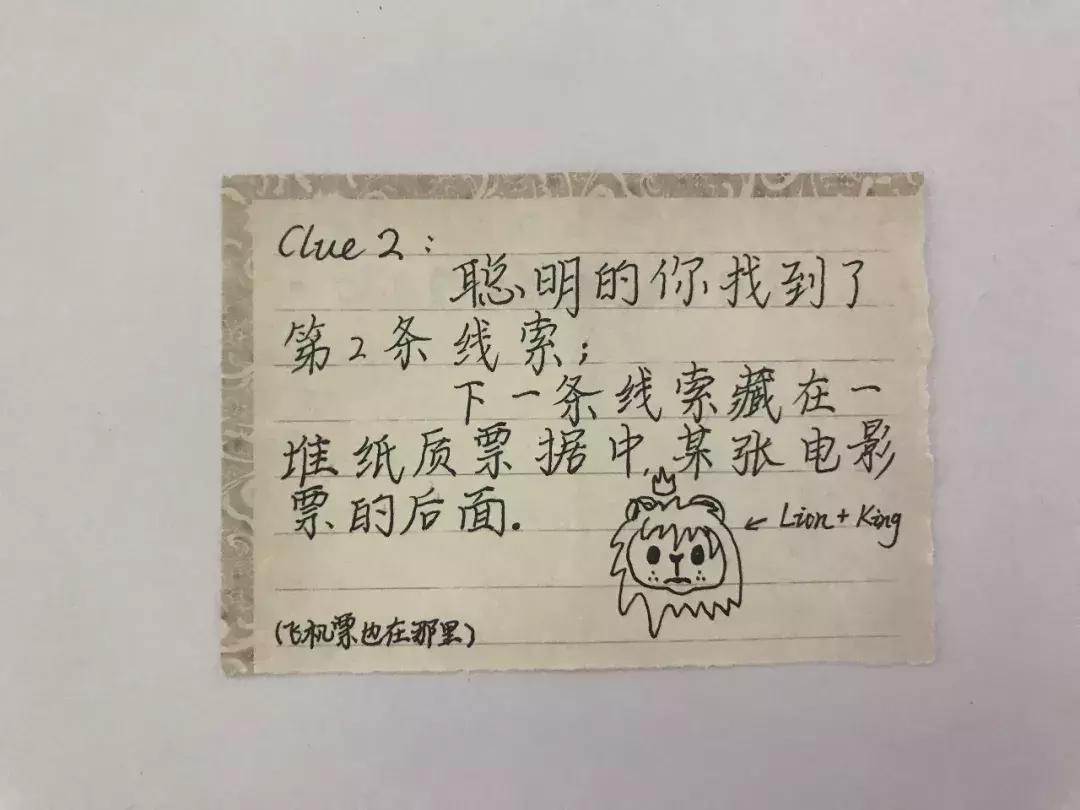 Clue 2:
聪明的你找到了
第2条线索;
下一条线索藏在一
堆纸质票据中,某张电影
票的后面.
← Lion + King
(飞机票也在那里)